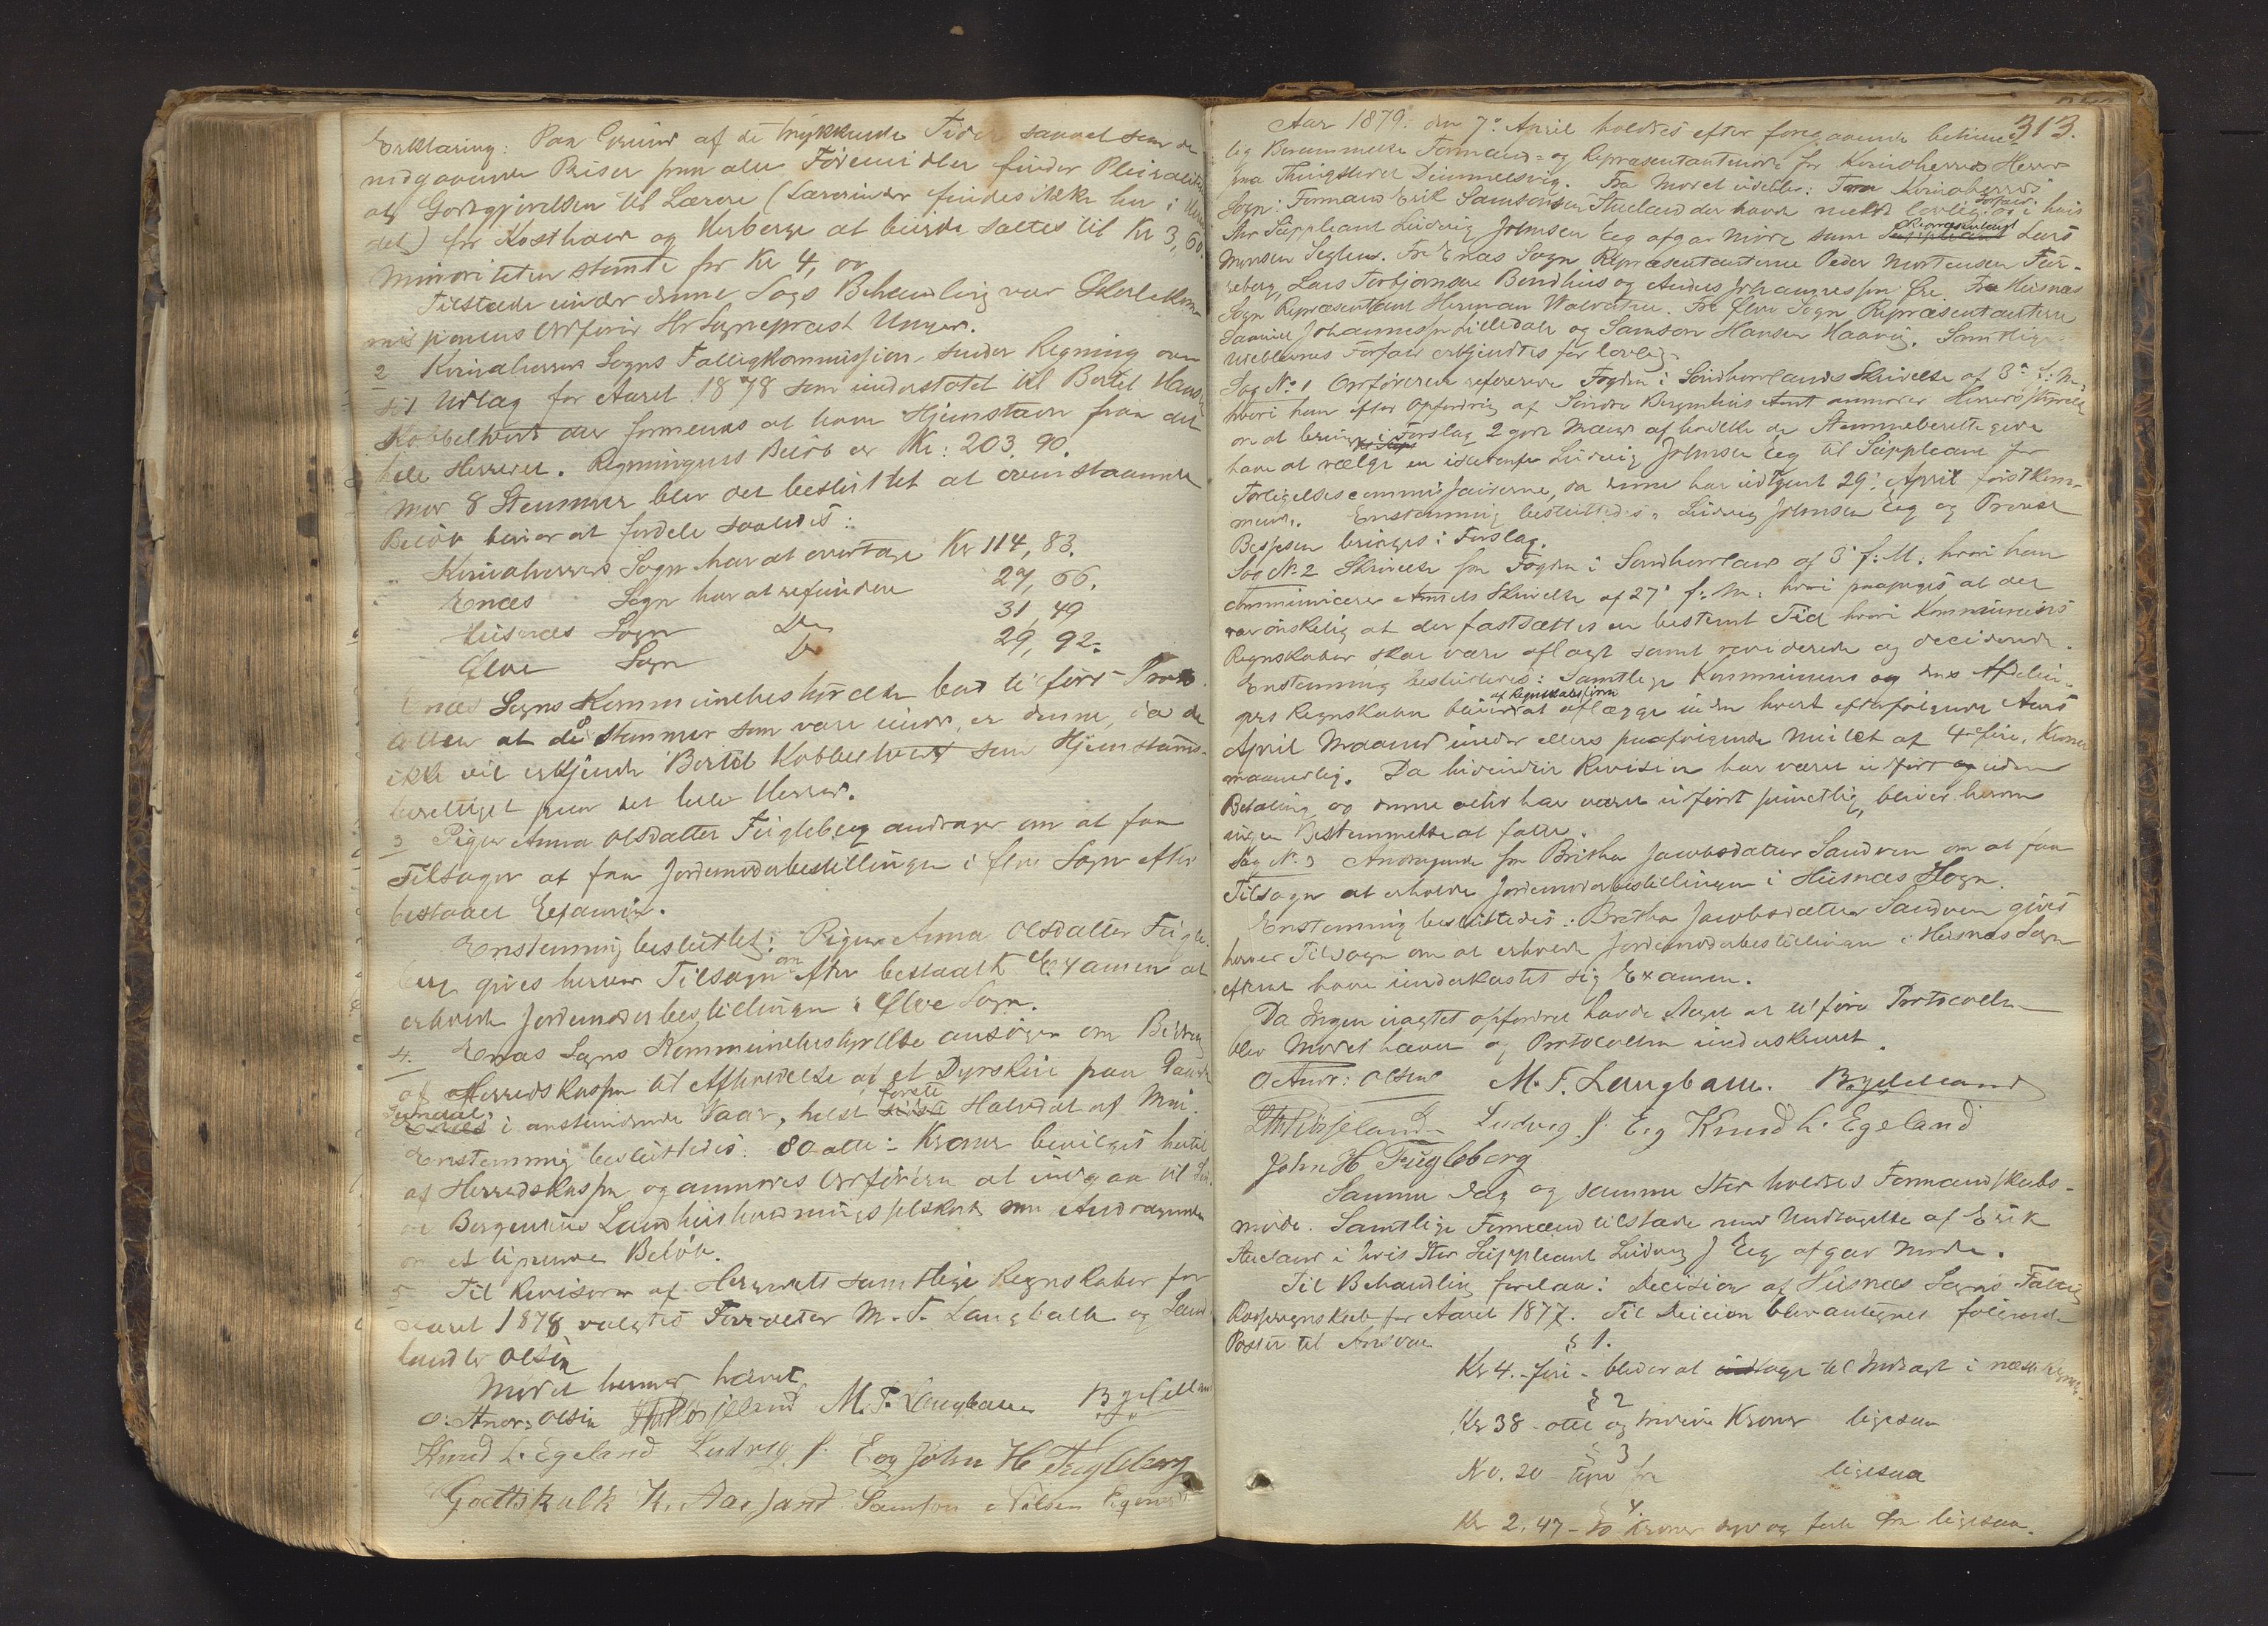 Erklæring: Paa Grund af de trykkende Tider saavel som de
nedgaaende Priser paa alle Födemidler finder Pleiraliteten
at Godtgjörelsen til Lærere (Lærerinder findes ikke her i Herre
det) for Kosthold og Herberge at burde sættes til Kr 3,60.
Minoriteten stemte for Kr 4,00
Tilstæde under denne Sags Behandling var Skolekom-
missionens Ordförer Hr Sognepræst Unger.
2 Kvindherreds Sogns Fattigkommission sender Regning over
sit Udlag for Aaret 1878 som understötet til Bertel Hansen
Kobbeltvedt der formenes at have Hjemstavn paa det
hele Herred. Regningens Belöb er Kr: 203. 90.
Mod 8 Stemmer blev det besluttet at ovenstaaende
Belöb bliver at fordele saaledes:
Kvindherreds Sogn har at overtage Kr 114, 83.
Enæs Sogn har at refundere 27, 66.
Husnæs Sogn Do 31, 49
Ölve Sogn Do 29, 92.
Enæs Sogns Kommunebestyrelse bad tilfört Proto-
collen at de Stemmer som vare imod, er denne, da de
ikke vil erkjende Bertel Kobbeltvedt som Hjemstavns-
berettiget paa det hele Herred.
3 Pigen Anna Olsdatter Fugleberg andrager om at faa
Tilsagn at faa Jordemoderbestillingen i Ölve Sogn efter
bestaaet Examin.
Enstemmig besluttet: Pigen Anna Olsdatter Fugle-
berg gives herved Tilsagn om efter bestaaet Examen at
erholde Jordemoderbestillingen i Ölve Sogn.
4. Enæs Sogns Kommunebestyrelse ansöger om Bidrag
af Herredskassen til Afholdelse af et Dyrskue paa Gaarden
Sundal Enæs i anstundende Vaar, helst förste sidste Halvdel af Mai.
Enstemmig besluttedes: 80 otti - Kroner bevilges hertil
af Herredskassen og anmodes Ordföreren at indgaa til Sön-
dre Bergenhus Landhusholdningsselskab med Andragende
om et lignende Belöb.
5 Til Revisorer af Herredets samtlige Regnskaber for
Aaret 1878 valgtes Forvalter M. F. Langballe og Land-
handler Olsen
Mödet hermed hævet
O. Andr: Olsen M. F. Langballe
Knud L. Egeland Ludvig J. Eeg John H Fugleberg
Godtskalk K. Samson Nilsen
313.
Aar 1879: den 7de April holdtes efter foregaaende betime-
lig Berammelse Formands- og Repræsentantmöde for Kvindherreds Herred
paa Thingstedet Dimmelsvig. Fra Mödet udebler: Fra Kvindherreds
Sogn: Formand Erik Samsonsen Stueland der havde meldt lovlig Forfald og i hvis
Sted Suppleant Ludvig Johnsen Eeg afgav Möde samt Repræsentant Suppleant Lars
Monsen Seglem. Fra Enæs Sogn Repræsentanterne Peder Mortensen Fur-
reberg, Lars Torbjörnsen Bondhus og Anders Johannessen Öre. Fra Husnæs
Sogn Repræsentant Herman Valvatne. Fra Ölve Sogn Repræsentanterne
Samuel Johannessen Lilledale og Samson Hansen Haavig. Samtlige
Udeblevnes Forfald erkjendtes for lovlig.
Sag No 1 Ordföreren refererede Fogden i Söndhordlands Skrivelse af 3die f: M:
hvori han efter Opfordring af Söndre Bergenhus Amt anmoder Herredsstyrelsen
om at bringe i Forslag 2 gode Mænd af hvilke de Stemmeberettigede
have at vælge en istedenfor Ludvig Johnsen Eeg til Suppleant for
Forligelsescommissairerne, da denne har udtjent 29de April förstkom-
mende. Enstemmig besluttedes: Ludvig Johnsen Eeg og
bringes i Forslag.
Sag No 2 Skrivelse fra Fogden i Söndhordland af 3die f: M: hvori han
communicerer Amtets Skrivelse af 27de f: M: hvori paapeges at det
var önskelig at der fastsættes en bestemt Tid hvori Kommunens
Regnskaber skal være aflagt samt reviderede og deciderede.
Enstemmig besluttedes: Samtlige Kommunens og dens Afdelin-
gers Regnskaber bliver af Regnskabsförerne at aflægge inden hvert efterfölgende Aars
April Maaned under ellers paafölgende Mulct af 4 - fire, Kroner
maanedlig. Da hidindtil Revision har været udfört og uden
Betaling og denne altid har været udfört punctlig, bliver herom
ingen Bestemmelse at fatte.
Sag No 3 Andragende fra Britha Jacobsdatter Sandven om at faa
Tilsagn at erholde Jordemoderbestillingen i Husnæs Sogn.
Enstemmig besluttedes: Britha Jacobsdatter Sandven gives
herved Tilsagn om at erholde Jordemoderbestillingen i Husnæs Sogn
efterat have underkastet sig Examen.
Da Ingen uagtet opfordret havde Noget at tilföre Protocollen
blev Mödet hævet og Protocollen underskrevet.
O Andr: Olsen M. F. Langballe.
Ludvig J. Eeg Knud L. Egeland
John H Fugleberg
Samme Dag og samme Sted holdtes Formandskabs-
möde. Samtlige Formænd tilstæde med Undtagelse af Erik
Stueland i hvis Sted Suppleant Ludvig J Eeg afgav Möde.
Til Behandling forelaa: Decision af Husnæs Sogns Fattig-
kasseregnskab for Aaret 1877. Til Decision blev antegnet fölgende
Poster til Ansvar § 1.
Kr 4. - fire - bliver at indtage til Indtægt i næste Regnsk.
§ 2
Kr 38 - otte og tredive Kroner ligesaa
§ 3
Kr 0. 20 - tyve Öre ligesaa
§ 4.
Kr 2. 47 - to Kroner syv og förti Öre ligesaa.